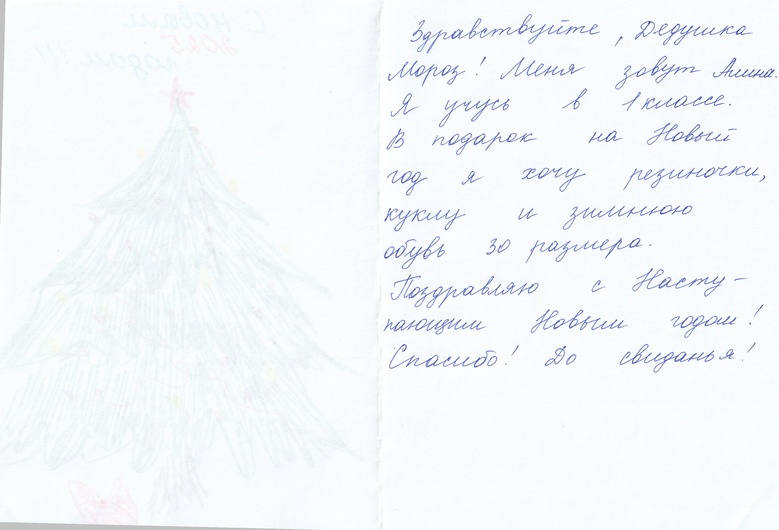 С новым
2025
годом !!!
Здравствуйте , Дедушка
Мороз! Меня зовут Алина.
Я учусь в 1 классе.
В подарок на Новый
год я хочу резиночки,
куклу и зимнюю
обувь 30 размера.
Поздравляю с Насту-
пающим Новым годом!
Спасибо! До свиданья!